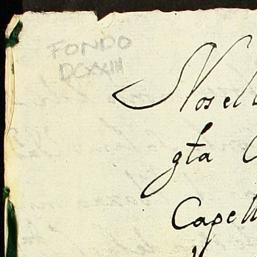 FONDO
DCXXIII
Nosel
gta C
Capell